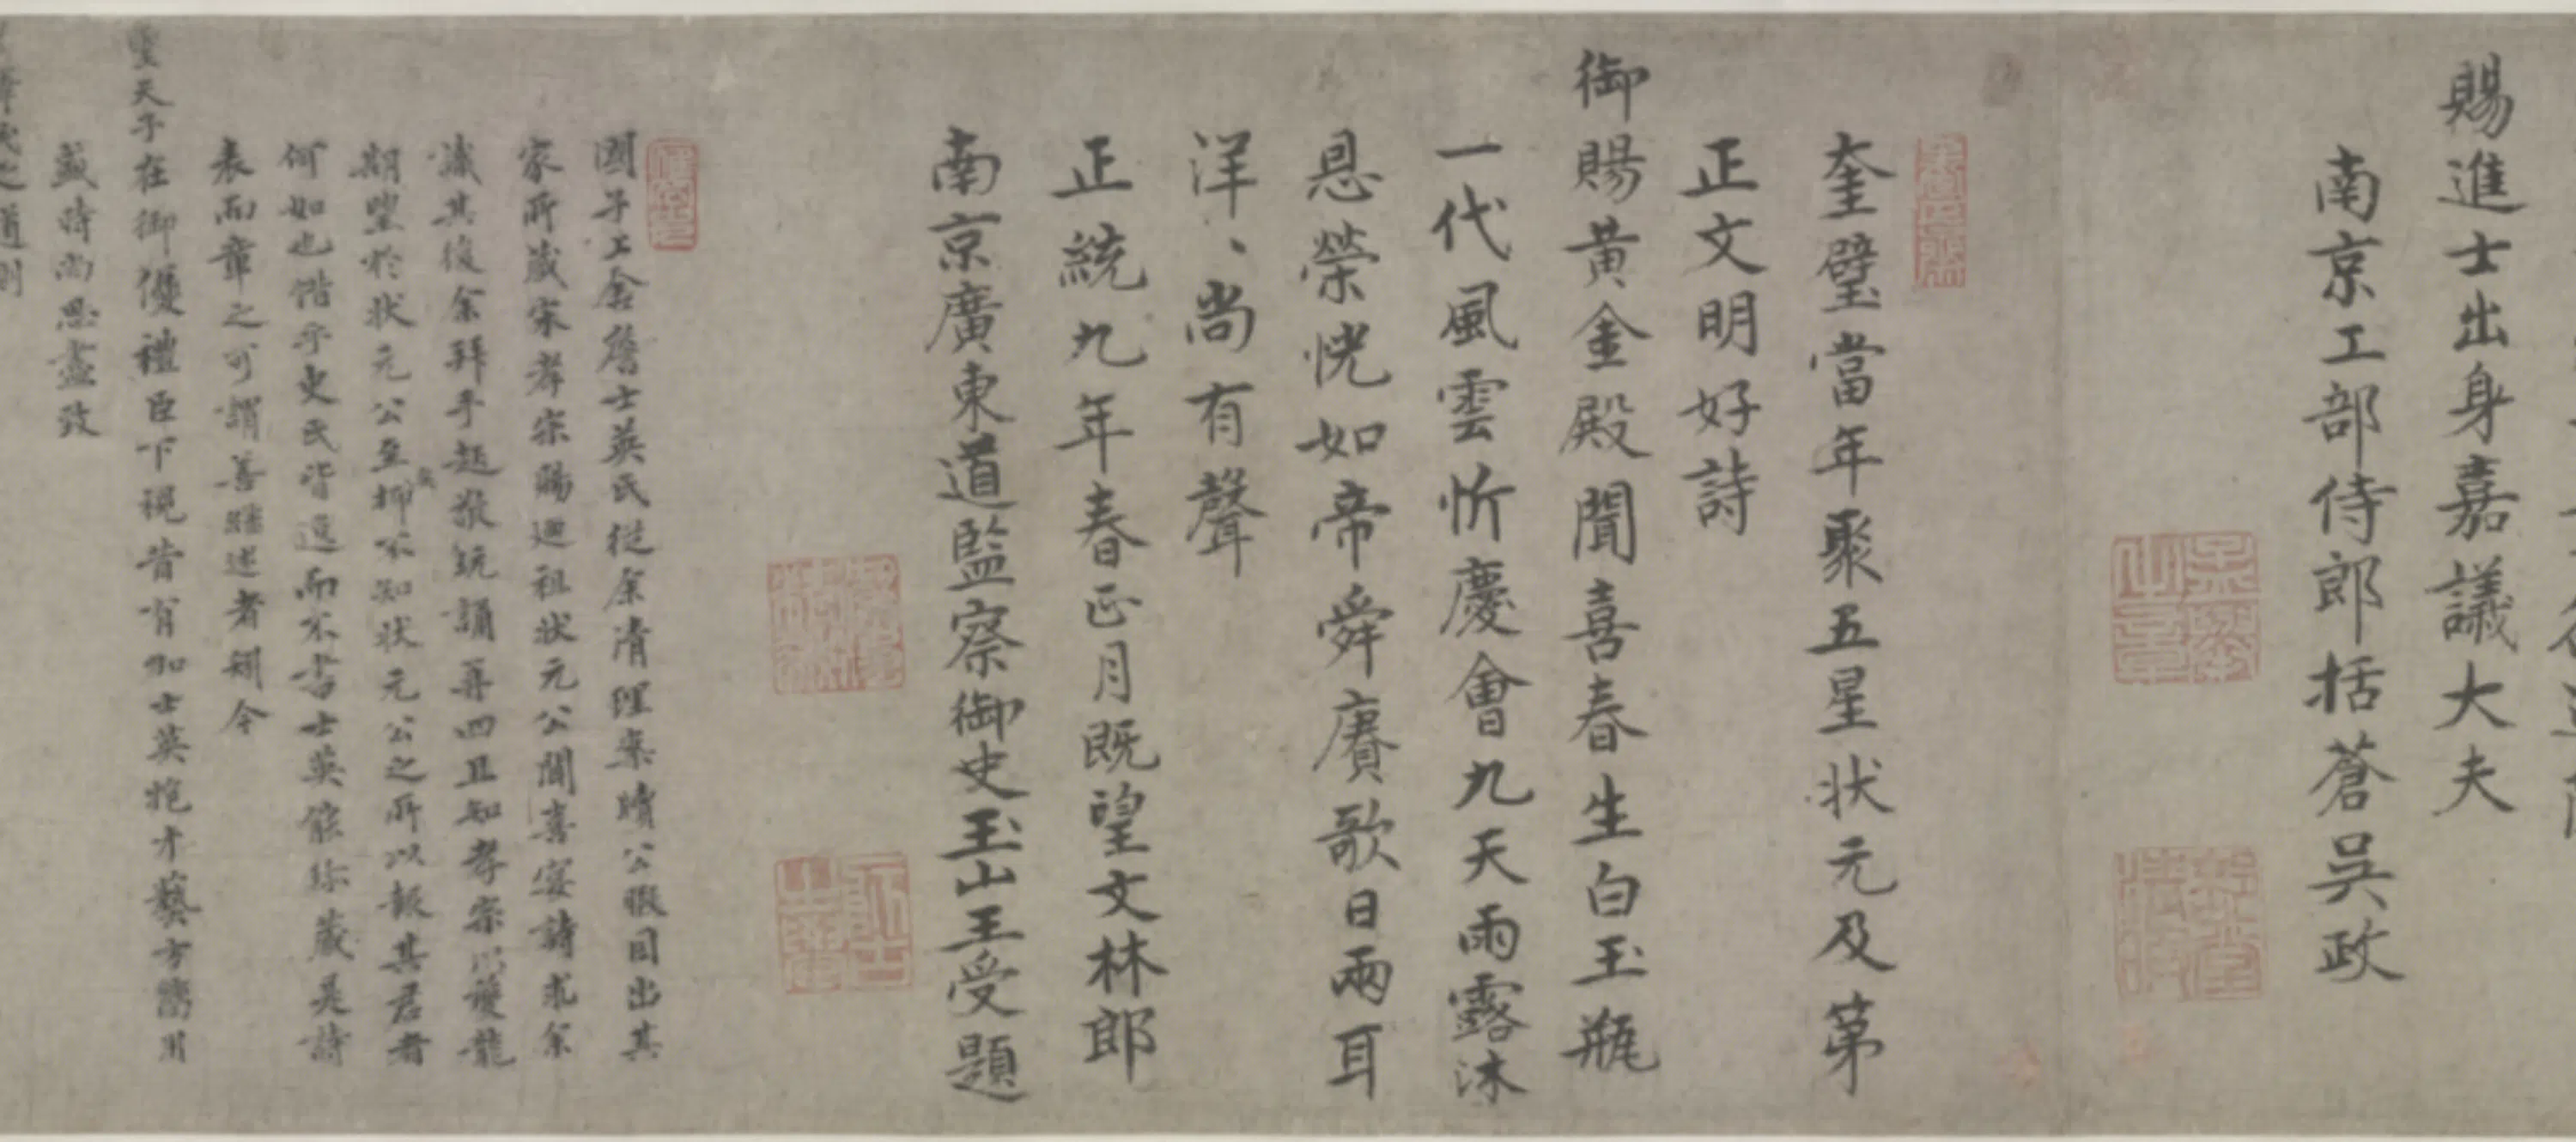 賜進士出身嘉議大夫
南京工部侍郎括蒼吳政
奎璧當年聚五星狀元及第
正文明好詩
御賜黃金殿聞喜春生白玉瓶
一代風雲忻慶會九天雨露沐
恩榮恍如帝舜賡歌日兩耳
洋、尚有聲
正統九年春正月既望文林郎
南京廣東道監察御史玉山王受題
國子上舍詹士英氏從余清理案牘公暇因出其
家所藏宋孝宗賜廻祖狀元公聞喜宴詩求余
識其後余拜手起敬玩誦再四且知孝宗以夔龍
期望於狀元公至矣抑不知狀元公之所以報其君者
何如也惜乎史氏皆逸而不書士英能珍藏是詩
表而章之可謂善繼述者矧今
聖天子在御優禮臣下視昔有加士英抱才藝方嚮用
盛時尚思盡致